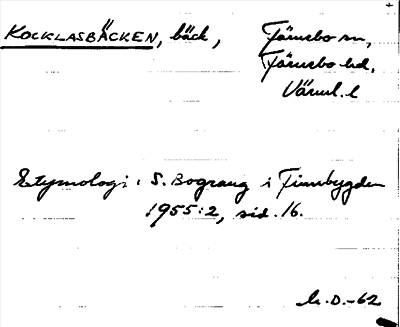 KOCKLASBÄCKEN, bäck, Färnebo sn,
Färnebo hd,
Värml. l
Etymologi: S. Bograng i Finnbygden
1955:2, sid. 16.
-62